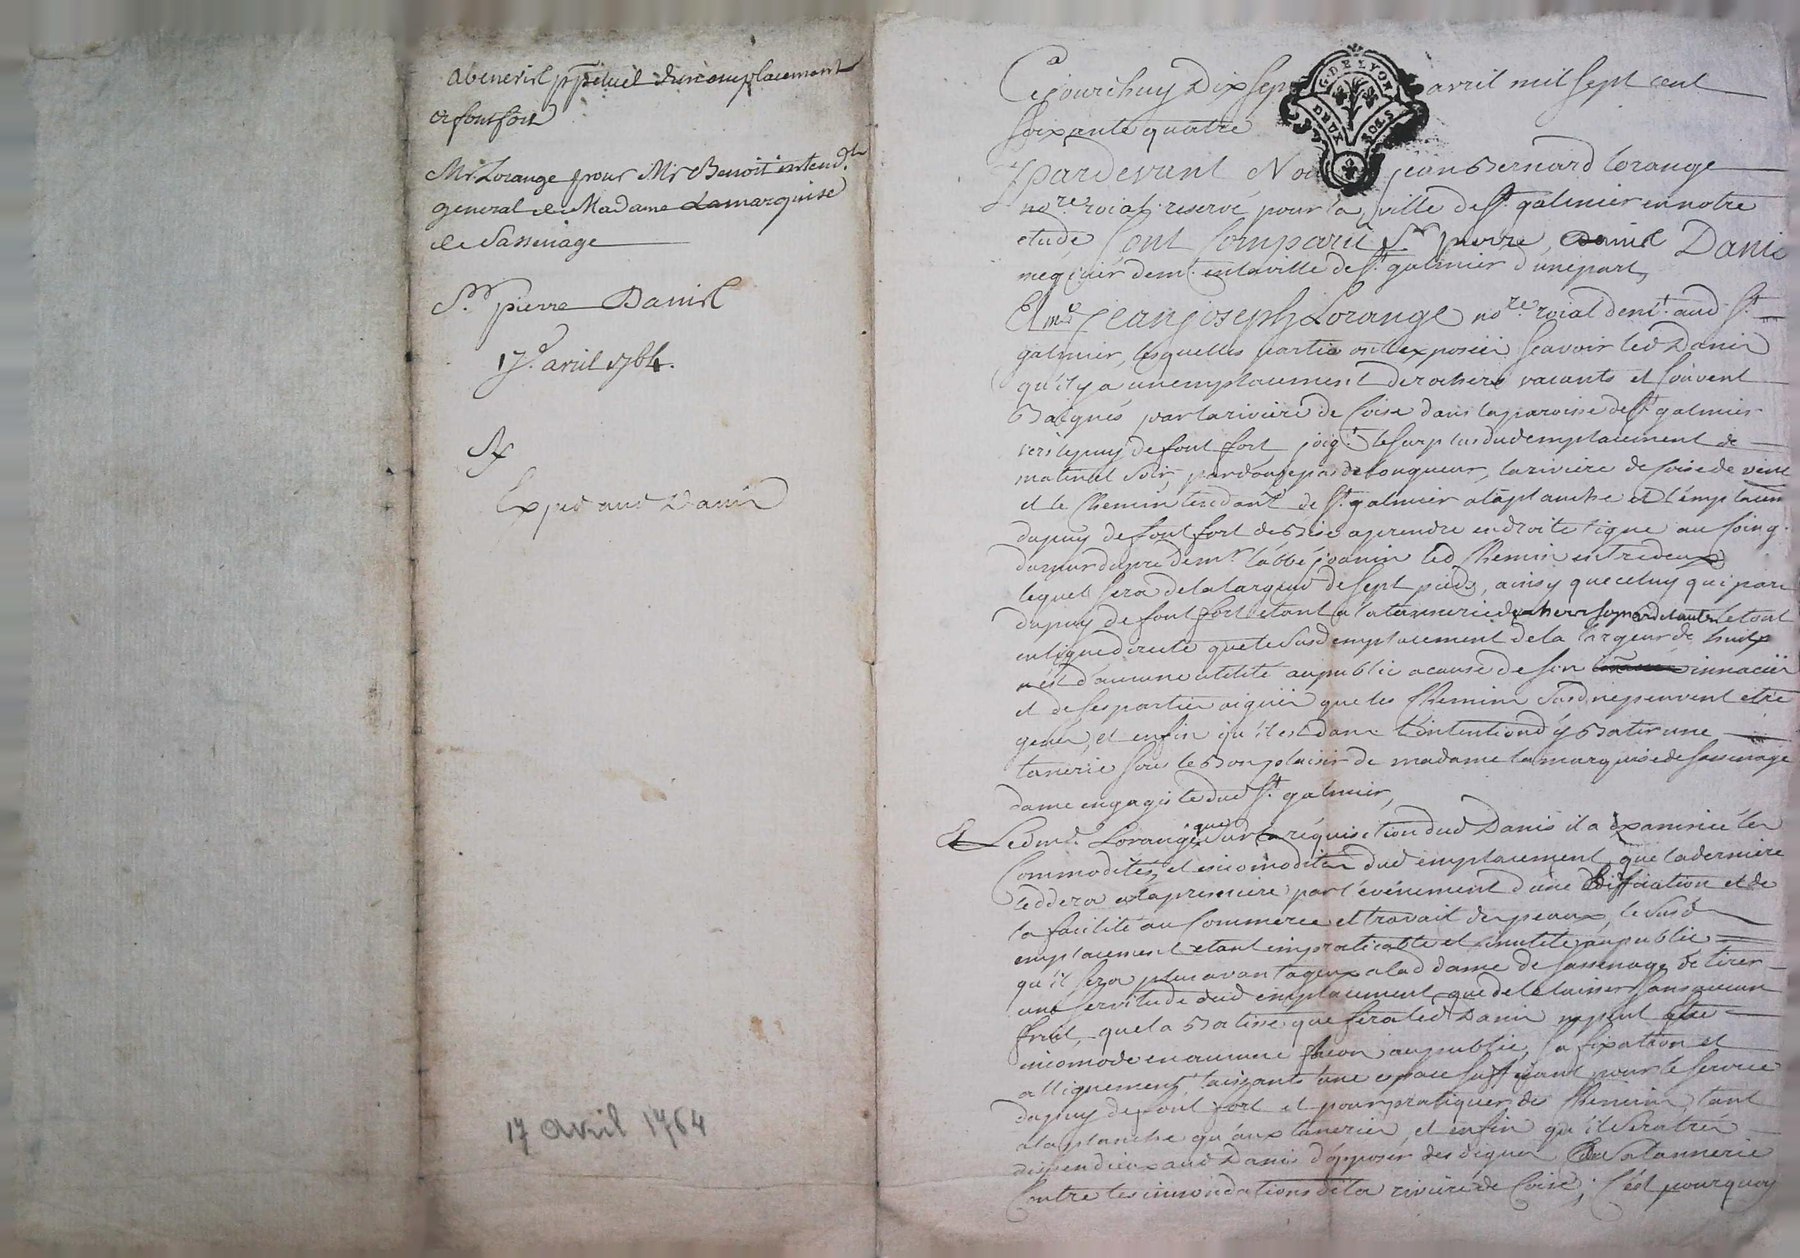 abenevis perpétuel d'un emplacement
a fontfort
Mr Lorange pour Mr Benoit intendt
general de Madame Lamarquise
de Sassenage
Sr pierre Danis
17e avril 1764.
Expié aud Danis
17 avril 1764
Cejourdhuy Dix sept avril mil sept cent
soixante quatre
G. DE LYON
DEUX SOLS
Pardevant Nous jean Bernard Lorange
nore roial reservé pour la ville de St galmier en notre
etude, sont comparu Sr pierre Danis
negtier demt en la ville de St galmier d'une part,
Et me jean joseph Lorange nore roial demt aud St
galmier, lesquelles partie ont exposéés scavoir led Danis
qu'il y a un emplacement de rochers vacants et souvent
Baignés par la riviere de Coise dans la paroisse de St galmier
vers le puy de font fort joigt le surplus dud emplacement de
matin et soir, par douze pas de longueur, la riviere de Coise de vent
et le chemin tendant de St galmier a la planche et l'emplacem
du puy de font fort de bise a prendre en droite ligne au Coing
du mur du pré de mr l'abbé joanin led chemin entredeux
lequel sera de la largeur de sept pieds, ainsy que celuy qui part
du puy de font fort etant a la tannerie de le tout
en ligne directe que le susd emplacement de la largeur de huit
n'est d'aucune utilité au public a cause de son
et de ses parties aigües que les chemins susd ne peuvent etre
genés, et enfin qu'il est dans l'intention d'y Batir une
tanerie sous le Bon plaisir de madame la marquise de sassenage
dame engagiste dud St galmier,
Et Led me Lorange que sur la réquisition dud Danis il a éxaminée les
Commodités, et incomodités dud emplacement, que la derniere
cedera a la premiere par l'evénement d'une Edification et de
la facilité au Commerce et travail des peaux, le susd
emplacement etant impraticable et inutile au public
qu'il sera plus avantageux a lad dame de sassenage de tirer
une servitude dud emplacement que de le laisser sans aucun
fruit, que la Batisse que fera led Danis ne peut etre
incomode en aucune facon au public, la fixation et
allignement laissants une espace suffisant pour le service
du puy de font fort et pour pratiquer des chemins tant
a la planche qu'aux taneries, et enfin qu'il sera trés
dispendieux aud Danis d'opposer des digues a la tannerie
Contre les innondations de la riviere de Coise; C'est pourquoy